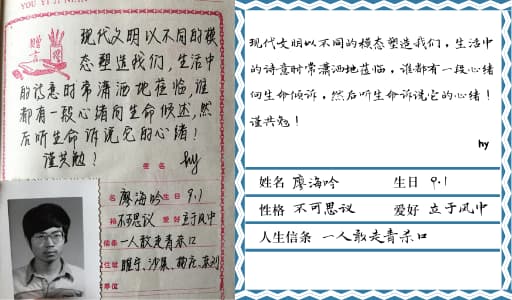 YOU YI JI NIAN
赠言
现代文明以不同的模
态塑造我们,生活中
的诗意时常潇洒地莅临,谁
都有一段心绪向生命倾述,然
后听生命诉说它的心绪!
谨共勉!
签名 hy
名 廖海吟 生日 9.1
性格 不可思议 爱好 立于风中
信条 一人敢走青杀口
住址 睢宁、沙集
单位
现代文明以不同的模态塑造我们,生活中
的诗意时常潇洒地莅临,谁都有一段心绪
向生命倾诉,然后听生命诉说它的心绪!
谨共勉!
hy
姓名 廖海吟 生日 9.1
性格 不可思议 爱好 立于风中
人生信条 一人敢走青杀口